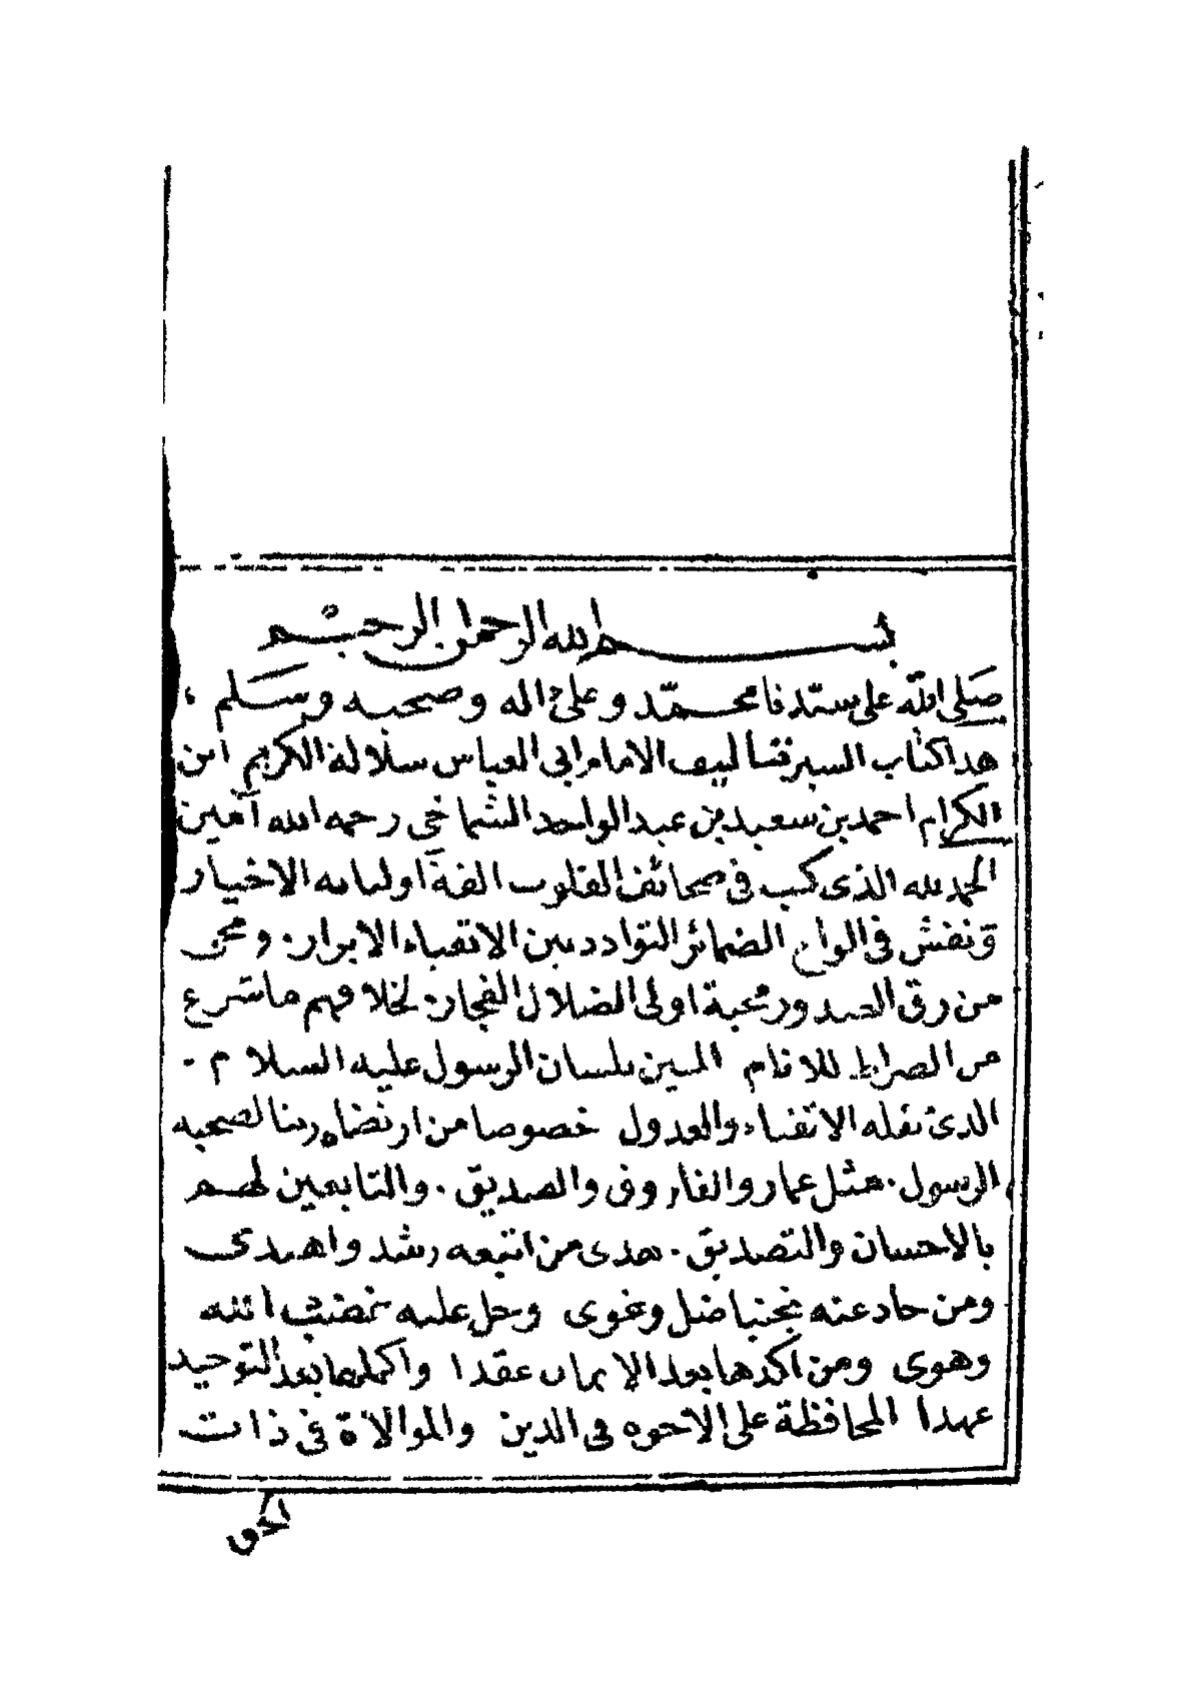 بسم الله الرحمان الرحيم
صلى الله على سيدنا محمد وعلى اله وصحبه وسلم ،
هذا كتاب السير تاليف الامام ابى العباس سلالة الكريم ابن
الكرام احمد بن سعيد بن عبد الواحد الشماخي رحمه الله آمين
الحمد لله الذى كتب فى صحائف القلوب الفة اوليايه الاخيار
ونقش فى الواح الضمائر التوادد بين الاتقياء الابرار . ومحى
من رق الصدور محبة اولى الضلال الفجار . لخلافهم ما شرع
من الصراط للانام المبين بلسان الرسول عليه السلام .
الذى نقله الاتقياء والعدول خصوصا من ارتضاه ربنا لصحبه
الرسول . مثل عمار والفاروق والصديق . والتابعين لهم
بالاحسان والتصديق . هدى من اتبعه رشد واهتدى
ومن حاد عنه مجنبا ضل وغوى وحل عليه الله
وهوى ومن اكدها بعد الايمان عقدا واكملها بعد التوحيد
عهدا المحافظة على الاخوه فى الدين والموالاة فى ذات
الحق